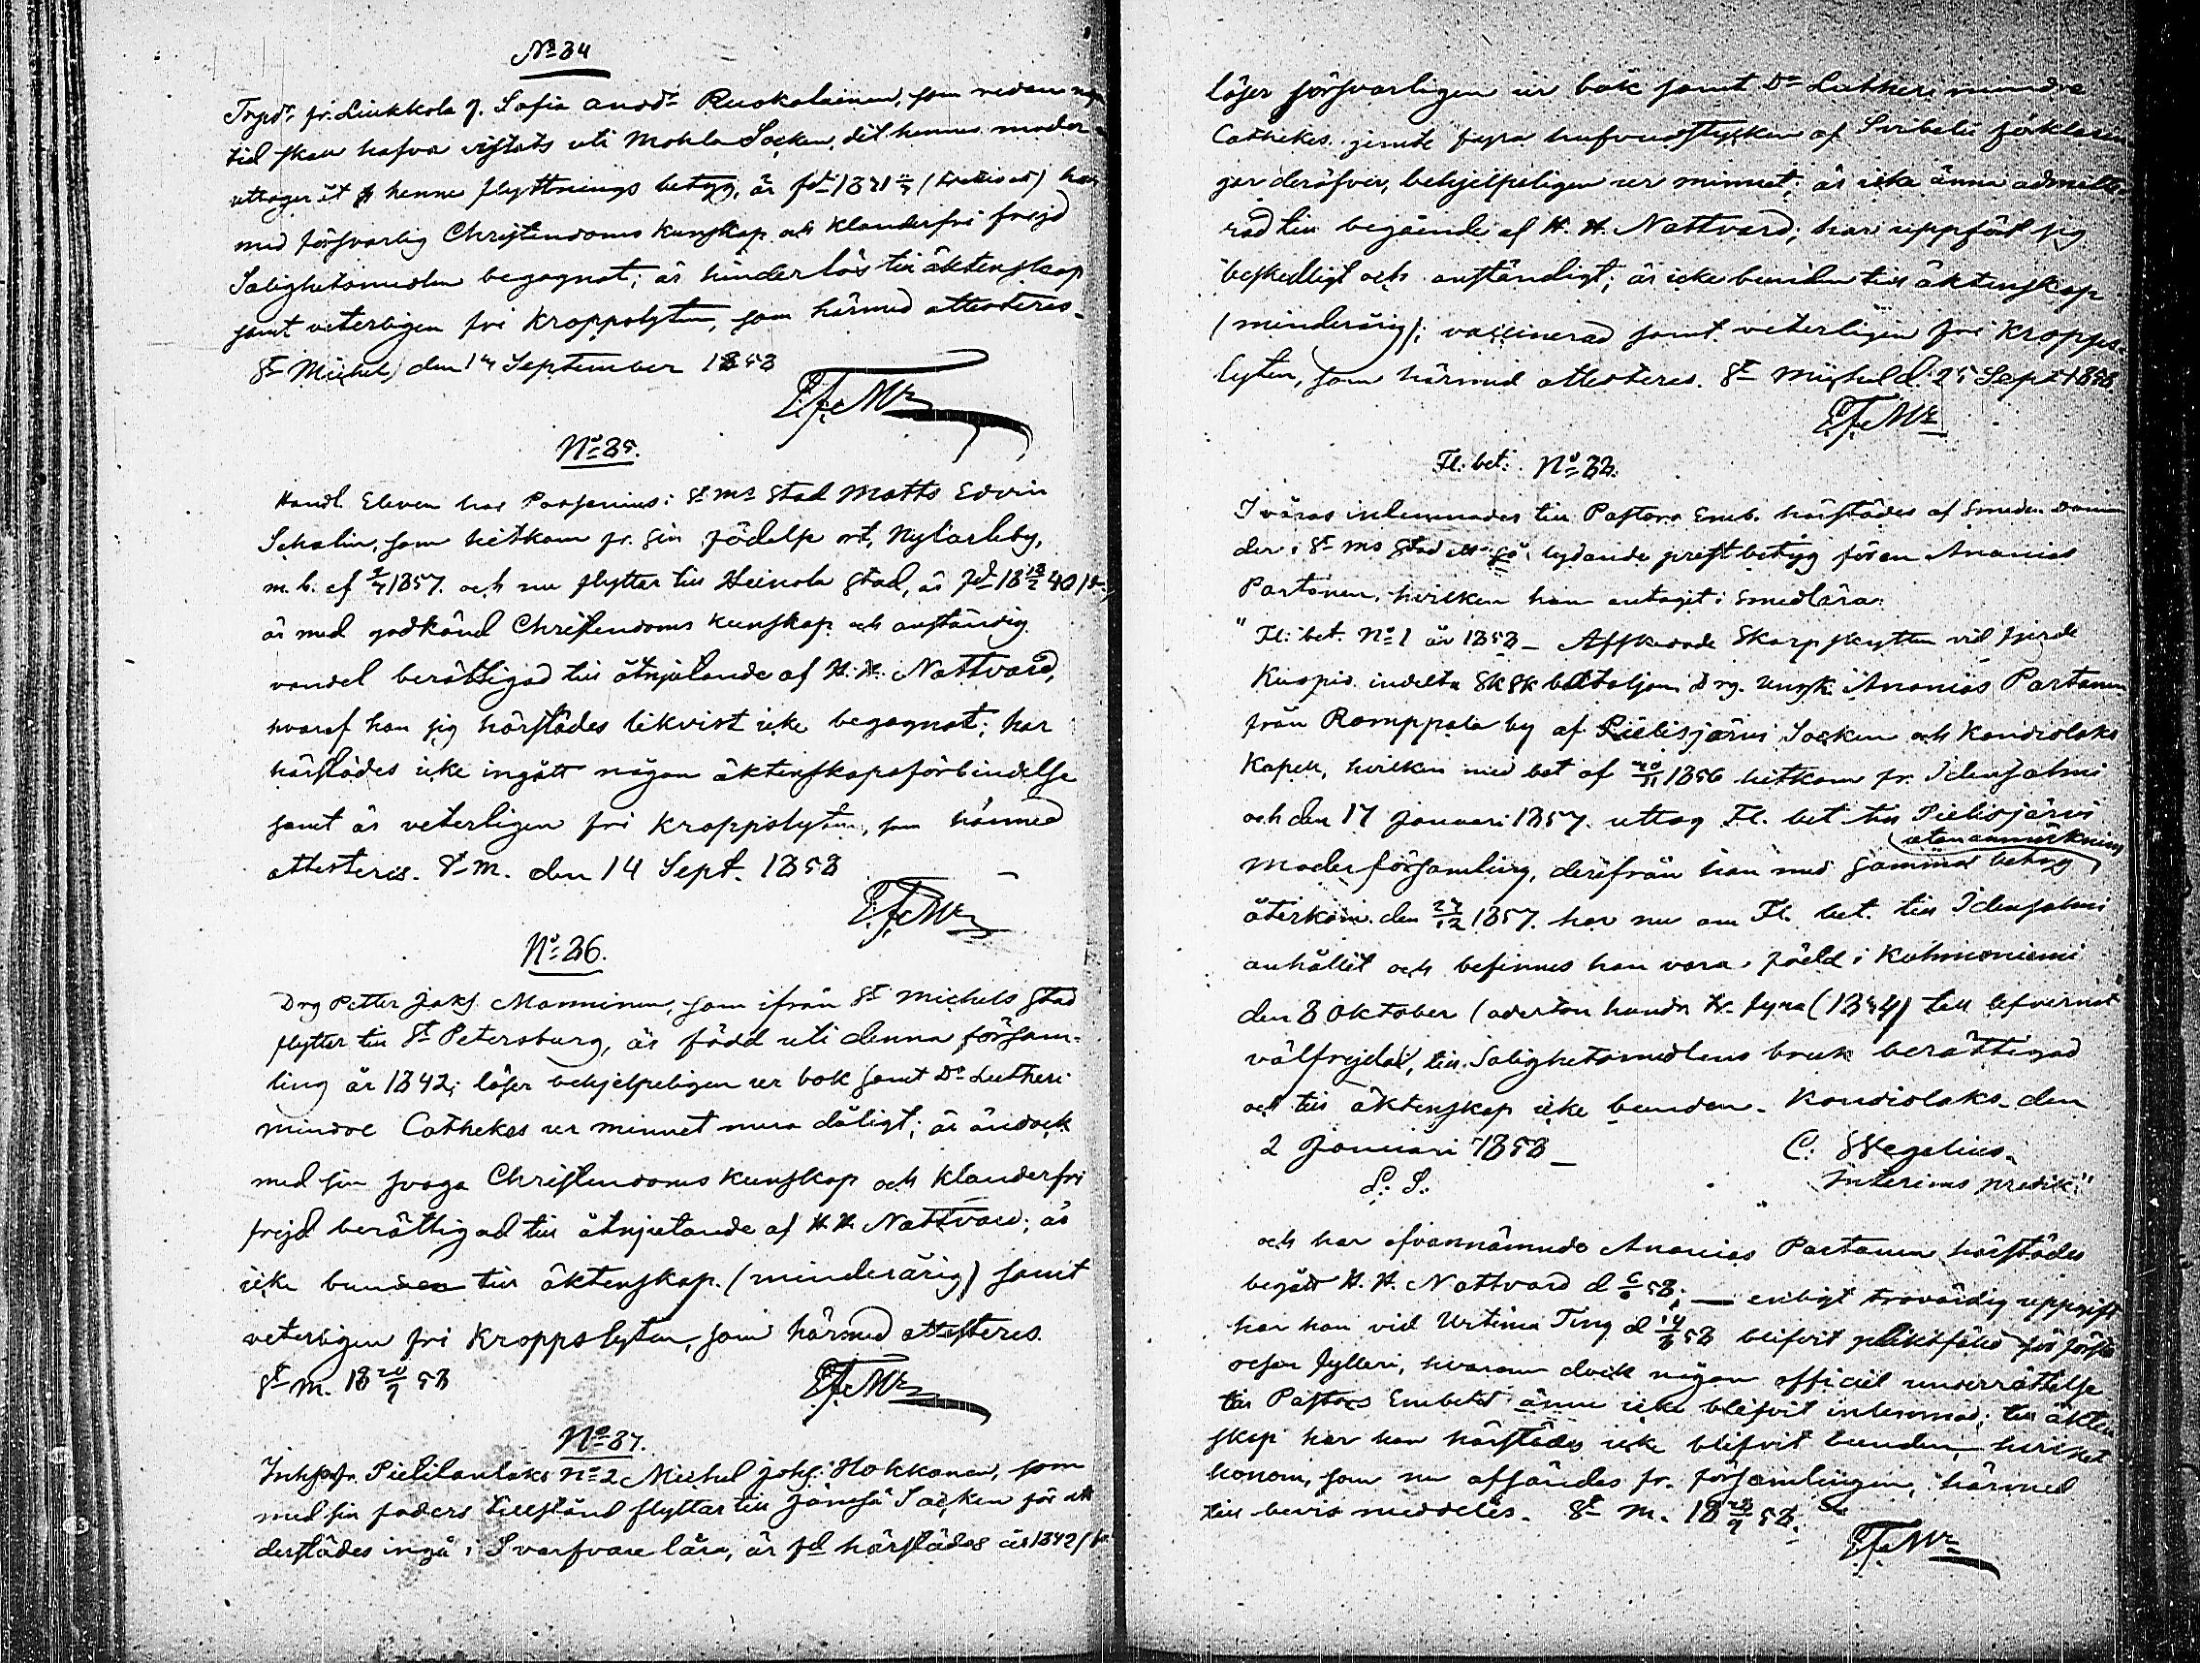 No 34
fr. Liukkola g. Sofia Andr Ruokolainen, som redan
tid skall hafva vistats uti Mohla Socken, dit hennes moder
uttager åt henne flyttnings betyg, är fd 1821
med försvarlig Christendoms kunskap och klanderfri frejd
Salighetsmedlen begagnat; är hinderlös till äktenskap
samt veterligen fri kroppslyten, som härmed attesteras.
St Michel, den 14 September 1858

No 35.
Handl. Eleven hos Porsenius i St Ms Stad Matts Edvin
Schalin, som hitkom fr. sin födelse ort, Nykarleby,
m. b. af 1857. och nu flyttar till Heinola stad, är fd 18 40
är med godkänd Christendoms kunskap och anständig
vandel berättigad till åtnjutande af H. H. Nattvard,
hvaraf han sig härstädes likvist icke begagnat; har
härstädes icke ingått någon äktenskapsförbindelse
samt är veterligen fri kroppslyten, som härmed
attesteris. St M. den 14 Sept. 1858

No 36.
Drg Petter Jaks. Manninen, som ifrån St Michels stad
flyttar till St Petersburg, är född uti denna försam-
ling år 1842; läser behjelpeligen ur bok samt Dr Lutheri
mindre Cathekes ur minnet mera dåligt; är ändock
med sin svaga Christendoms kunskap och klanderfri
frejd berättigad till åtnjutande af H. H. Nattvard; är
icke bunden till äktenskap. (minderårig) samt
veterligen fri kroppslyten, som härmed attesteres.
St M. 18 20/9 58

No 37.
fr. Pielilanlaks No 2 Michel Johs. Hokkanen, som
med sin faders tillstånd flyttar till Jämsä Socken för att
derstädes ingå i Svarfvare lära, är fd härstädes år 1842
läser försvarligen ur bok samt Dr Lutheri mindre
Cathekes. jemte fyra hufvudstycken af Svibelii förklarin
gar deröfver, behjelpeligen ur minnet; är icke ännu admitte-
rad till begående af H. H. Nattvard; har uppfört sig
beskedligt och anständigt; är icke bunden till äktenskap
(minderårig); vaccinerad samt veterligen fri kropps-
lyten, som härmed attesteres. St Michel d. 25 Sept 1858

Fl. bet. No 38.
I våras inlemnades till Pastors Emb. härstädes af Smeden
der i St Ms Stad ett så lydande prestbetyg för en Ananias
Partanen, hvilken han antagit i smedlära:
"Fl. bet. No 1 år 1858 - Afskedade Skarpskytten vid fjerde
Kuopio indelta Sk Sk bataljon Drg. Ananias Partanen
från Romppala by af Pielisjärvi Socken och Kondiolaks
Kapell, hvilken med bet af 1856 hitkom fr. Idensalmi
och den 17 Januari 1857. uttog Fl. bet till Pielisjärvi
utan anmärkning
Moderförsamling, derifrån han med samma betyg
återkom den 27/12 1857. har nu om Fl. bet. till Idensalmi
anhållit och befinnes han vara, född i Kuhmoniemi
den 8 Oktober (aderton hundr fyra (1834) till lefvernet
välfrejdad, till Salighetsmedlens bruk berättigad
och till äktenskap icke bunden. Kondiolaks den
2 Januari 1858
C. Wegelius
L. S.
Interims predik."
och har ofvannämnde Ananias Partanen härstädes
begått H. H. Nattvard d 58; enligt trovärdig uppgift
har han vid Urtima Ting d 58 blifvit pliktfälld för första
resan fylleri, hvarom dock någon officiel underrättelse
till Pastors Embetet ännu icke blifvit inlemnad; till äkten
skap har han härstädes icke blifvit bunden, hvilket
honom, som nu afsändes fr. församlingen, härmed
till bevis meddeles. St M. 18 58.